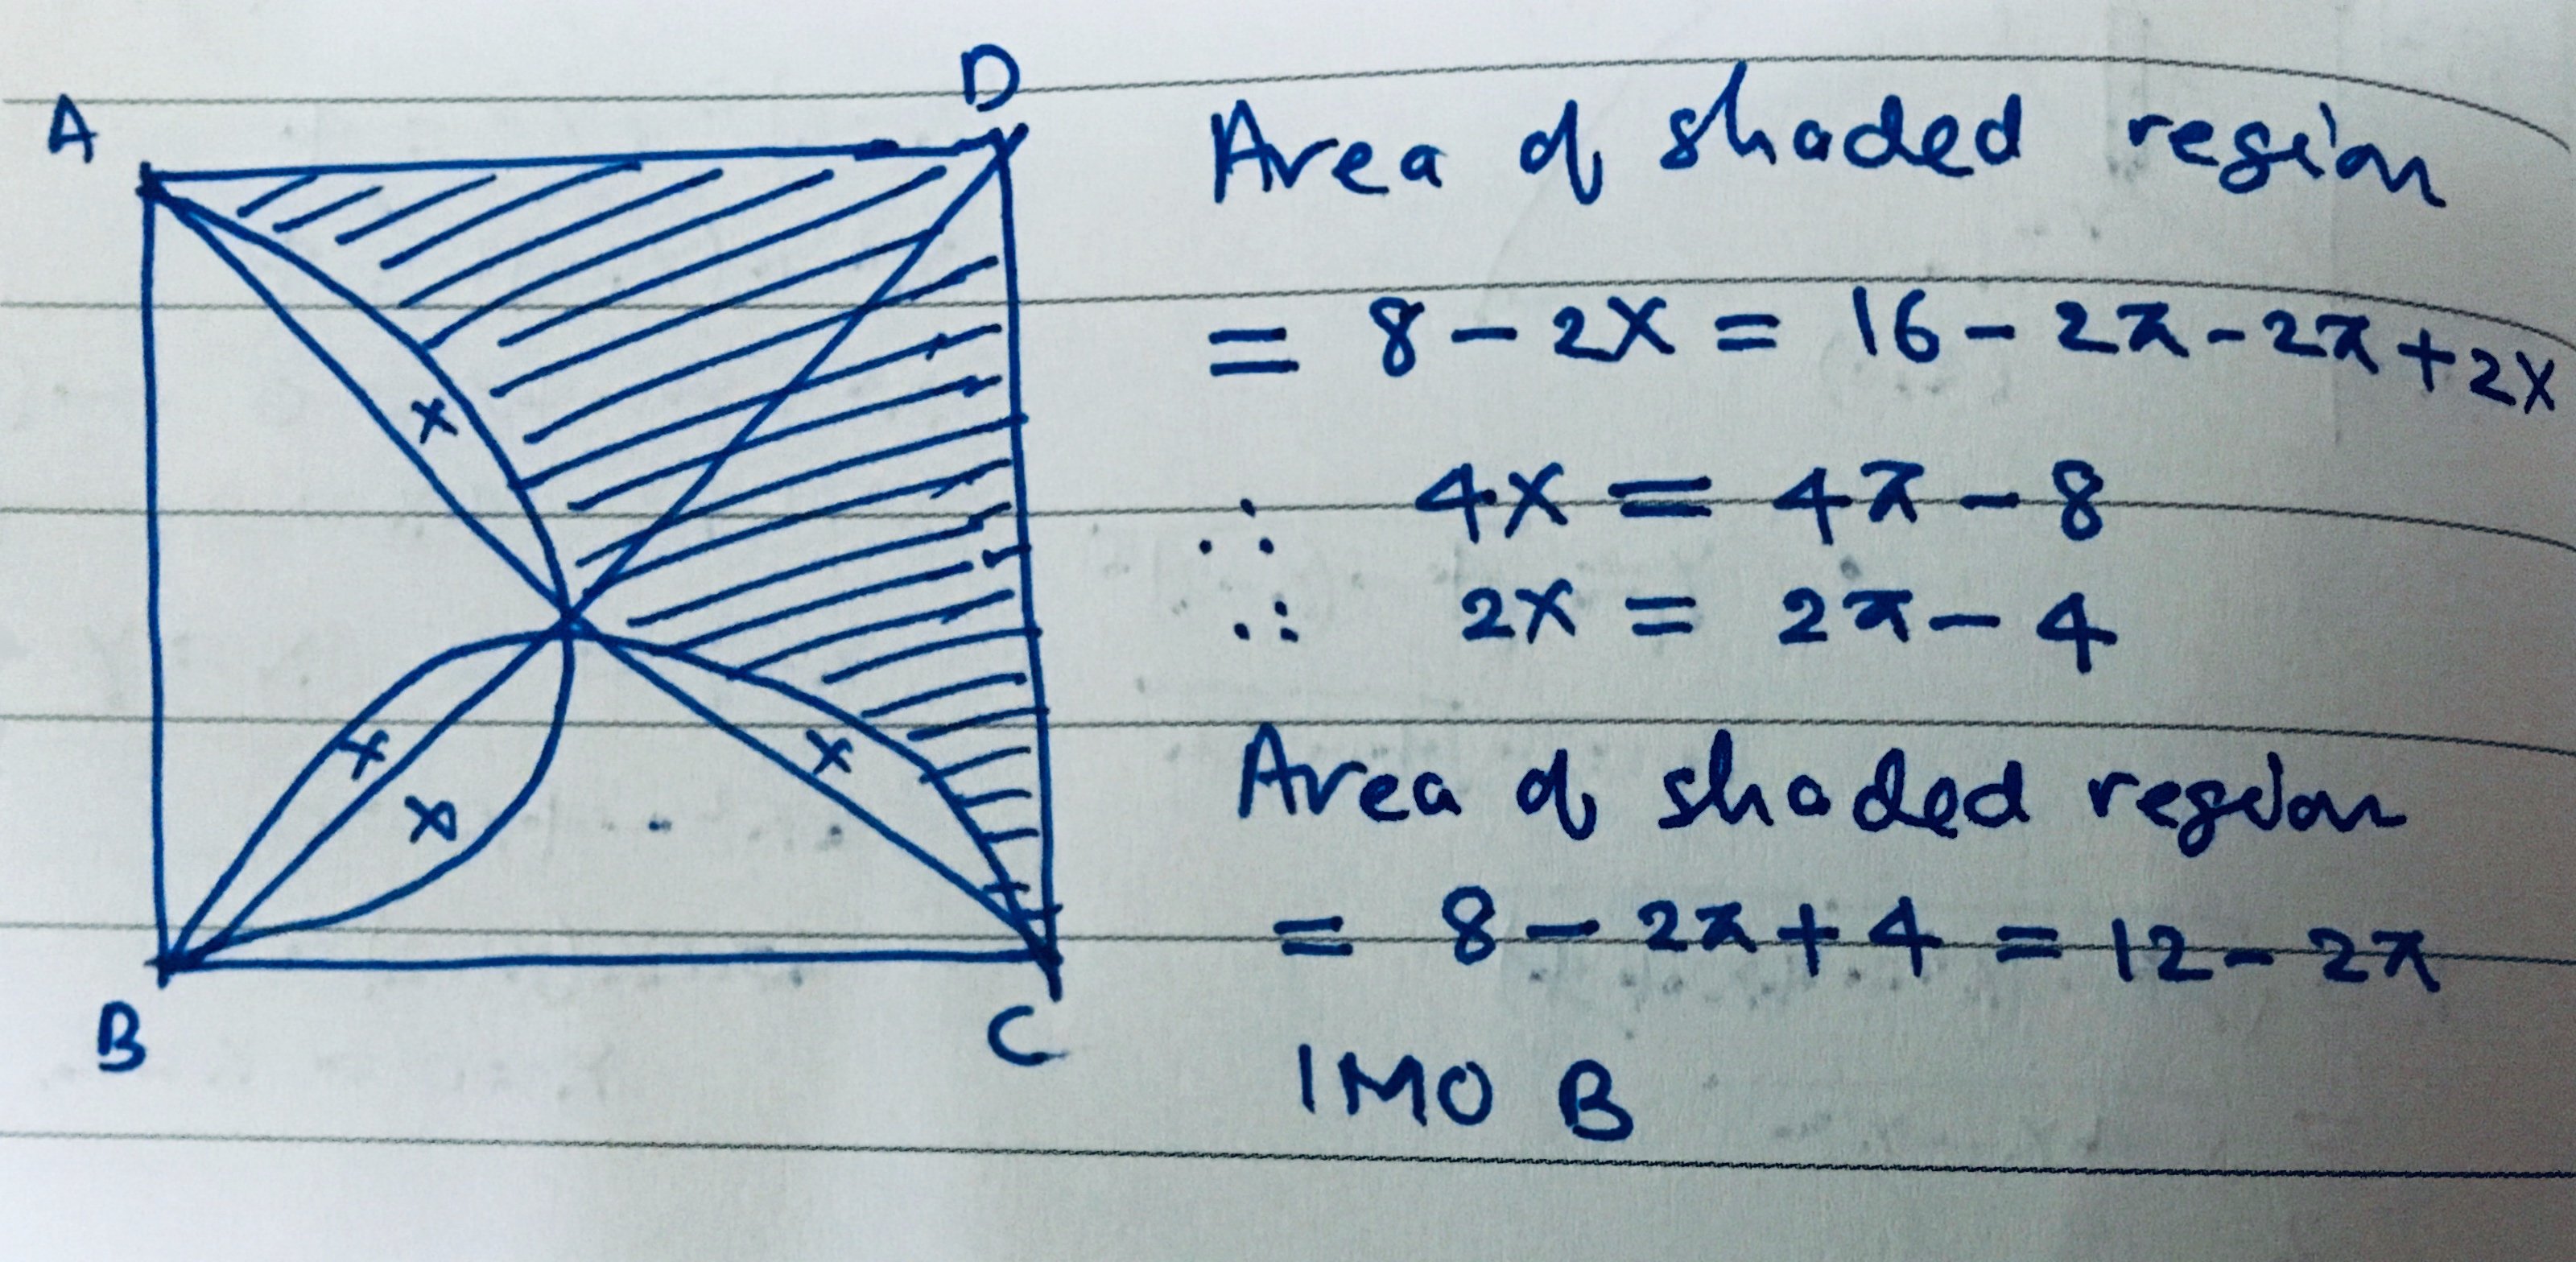 A
D
x
x
x
x
B
C
Area of shaded region
= 8 - 2x = 16 - 2π - 2π + 2x
∴ 4x = 4π - 8
∴ 2x = 2π - 4
Area of shaded region
= 8 - 2π + 4 = 12 - 2π
IMO B